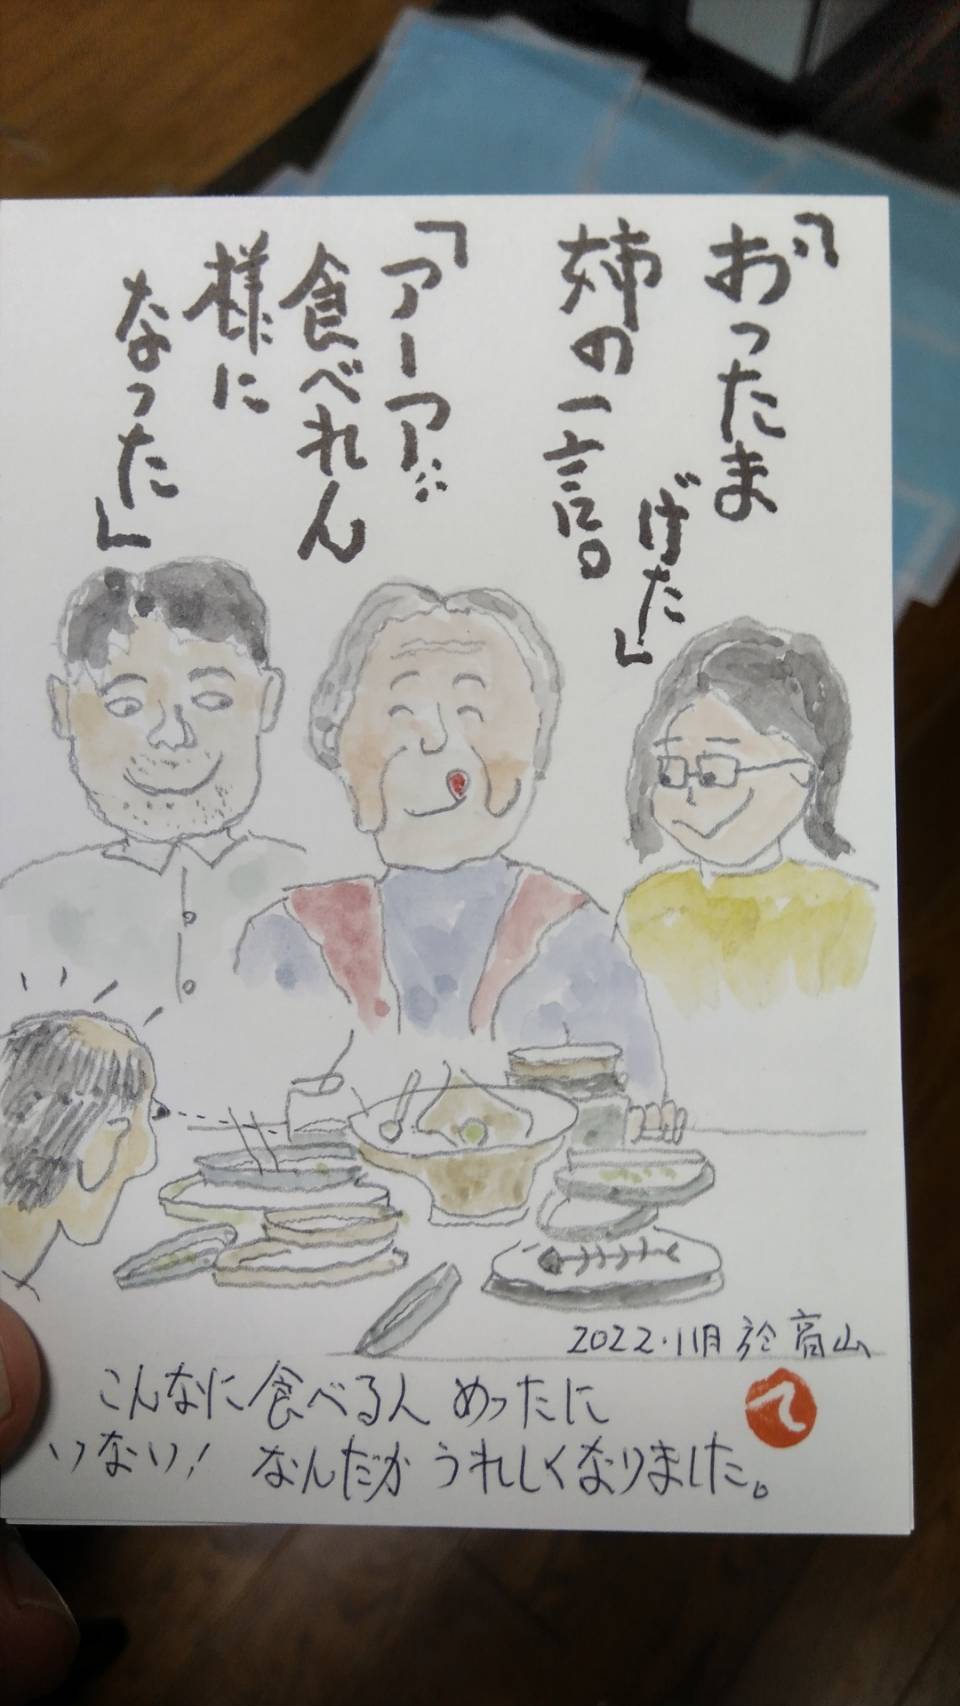 「おったま
げた」
姉の一言。
「アーア‼
食べれん
様に
なった」
2022.11月 於 高山
て
こんなに食べる人 めったに
いない! なんだか うれしくなりました。